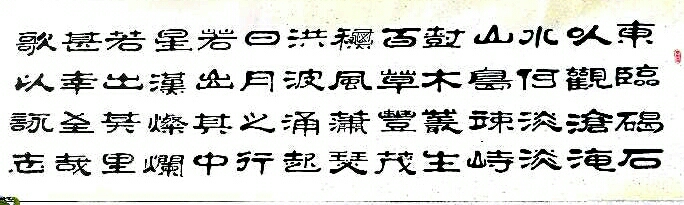 東臨碣石
以觀滄海
水何淡淡
山島竦峙
尌木叢生
百草豐茂
穐風蕭瑟
洪波涌起
日月之行
若出其中
星漢燦爛
若出其里
甚幸至哉
歌以詠志